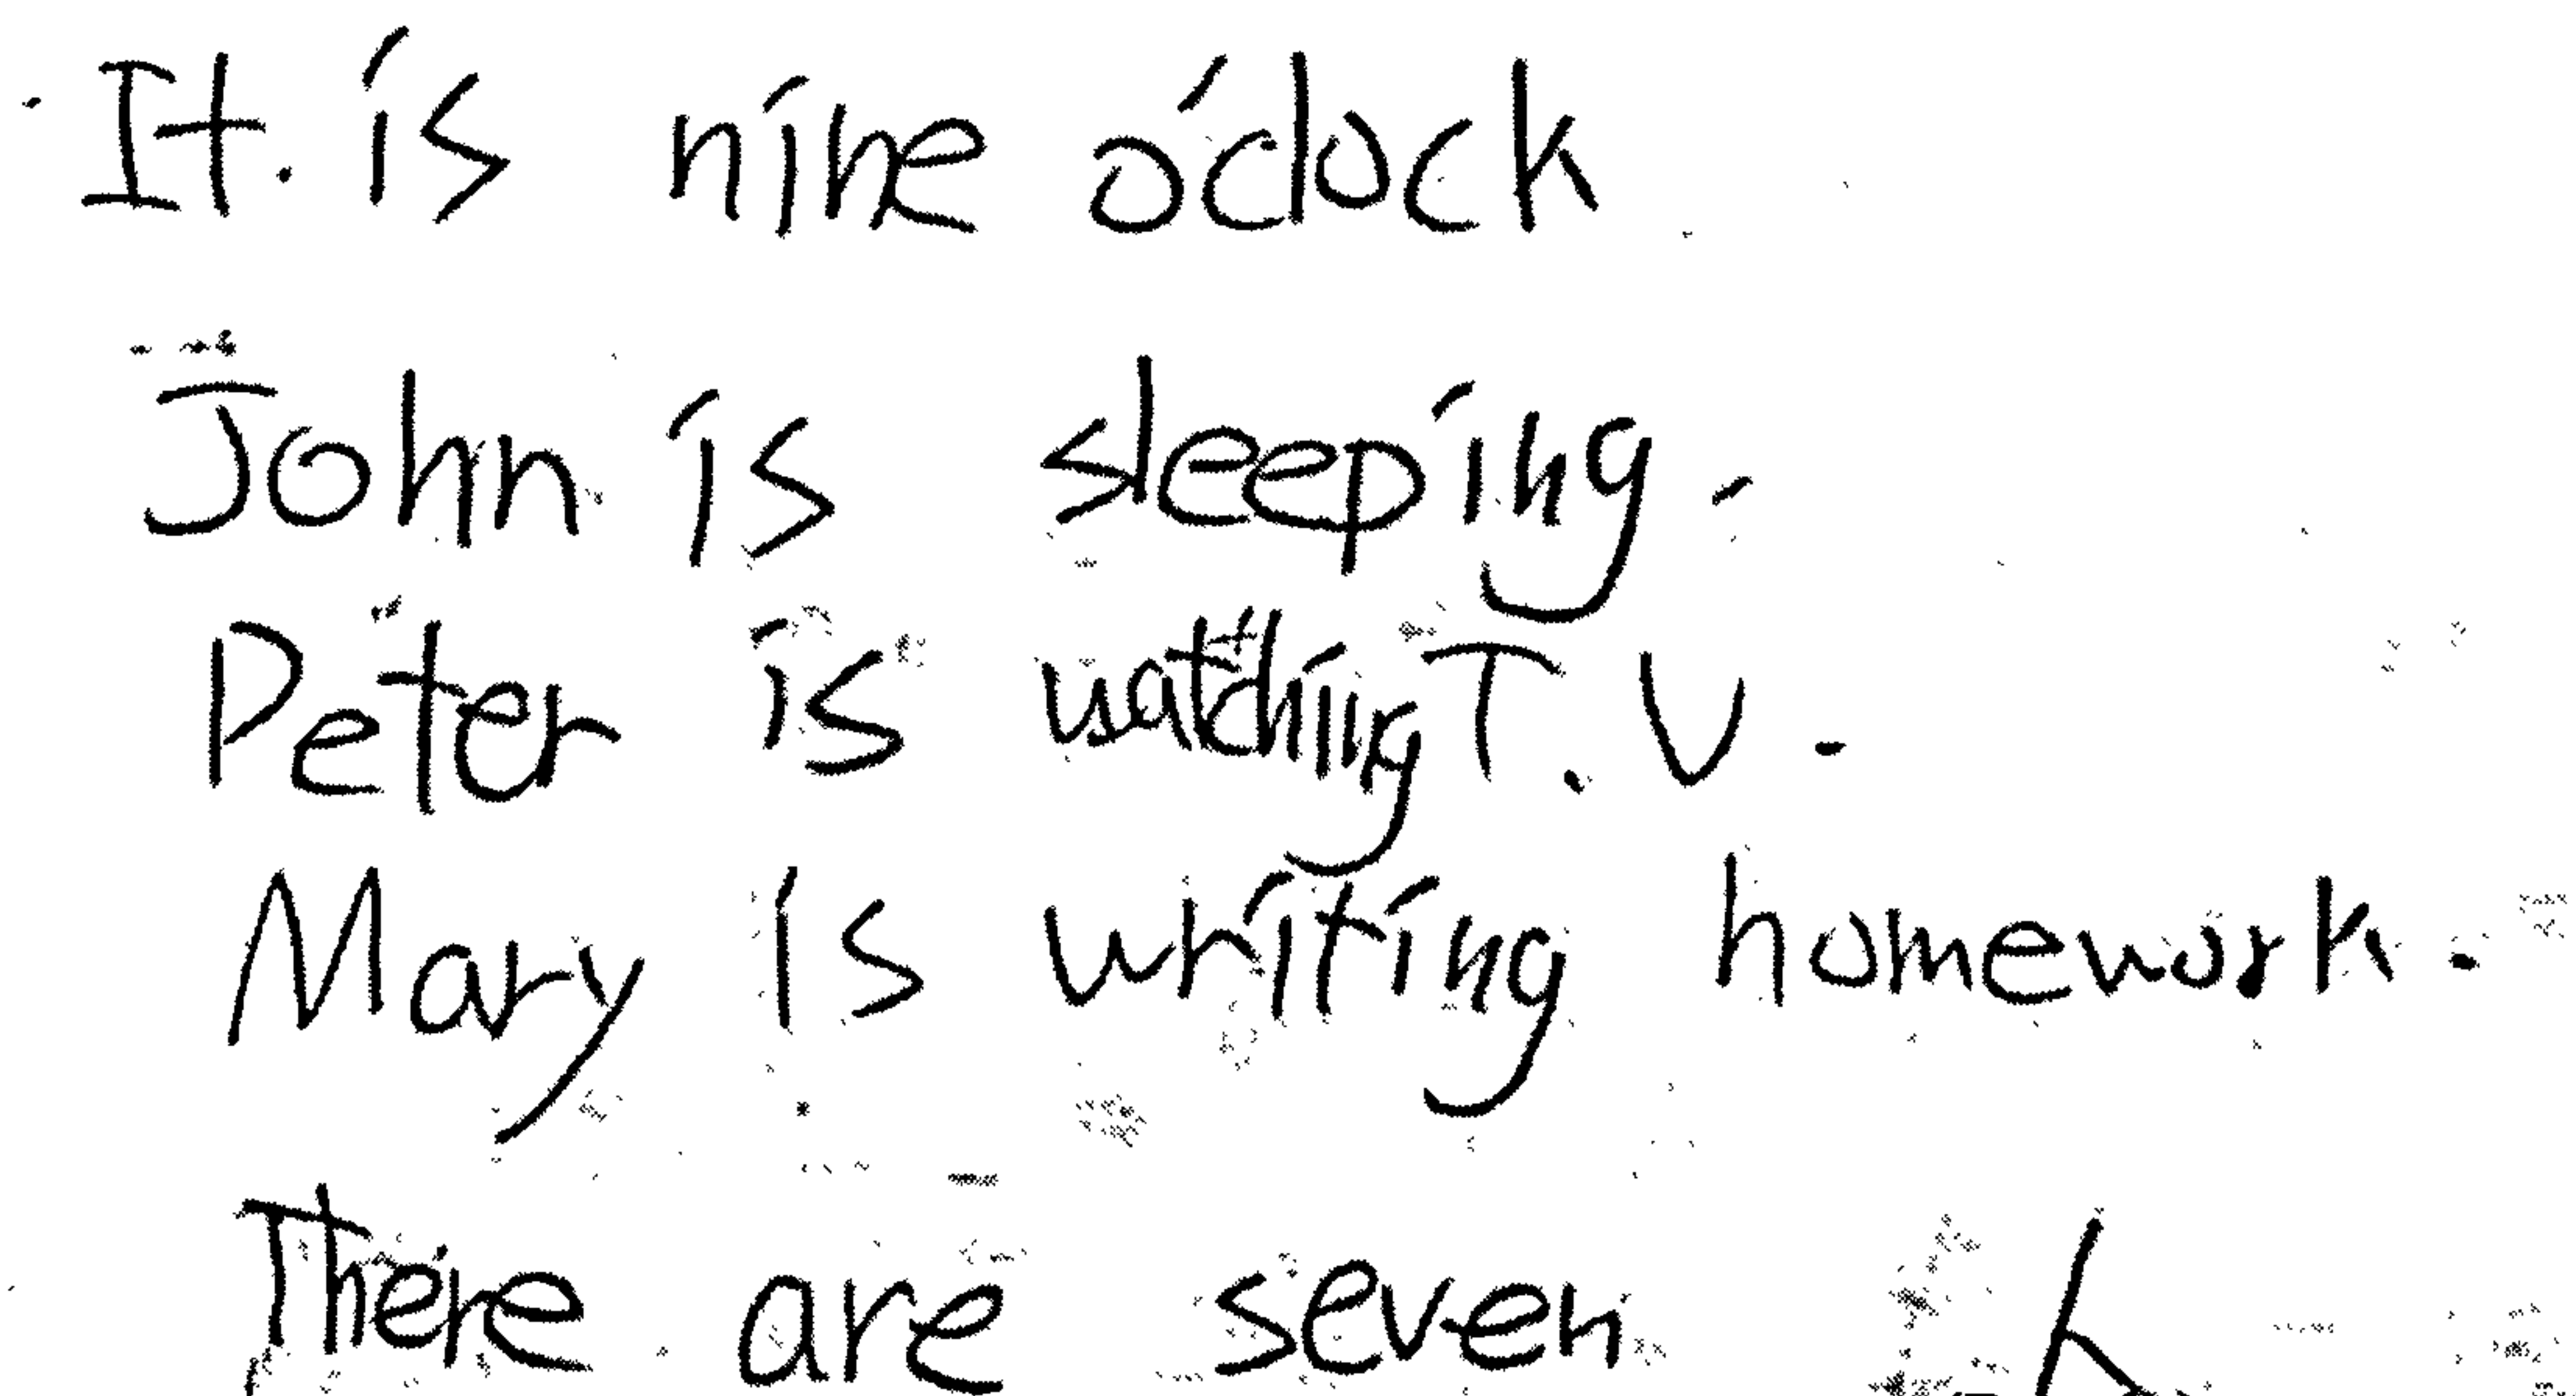 It is nine o'clock
John is sleeping.
Peter is watching T.V.
Mary is writing homework.
There are seven